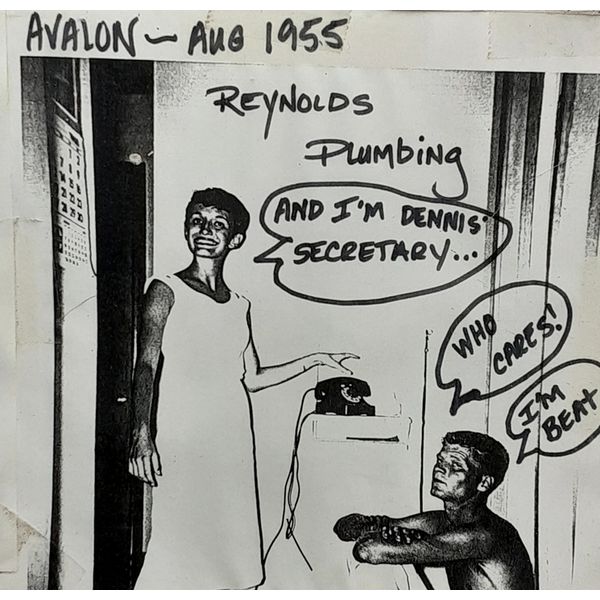 AVALON ~ AUG 1955
REYNOLDS
PLUMBING
AND I'M DENNIS'
SECRETARY...
WHO
CARES!
I'M
BEAT